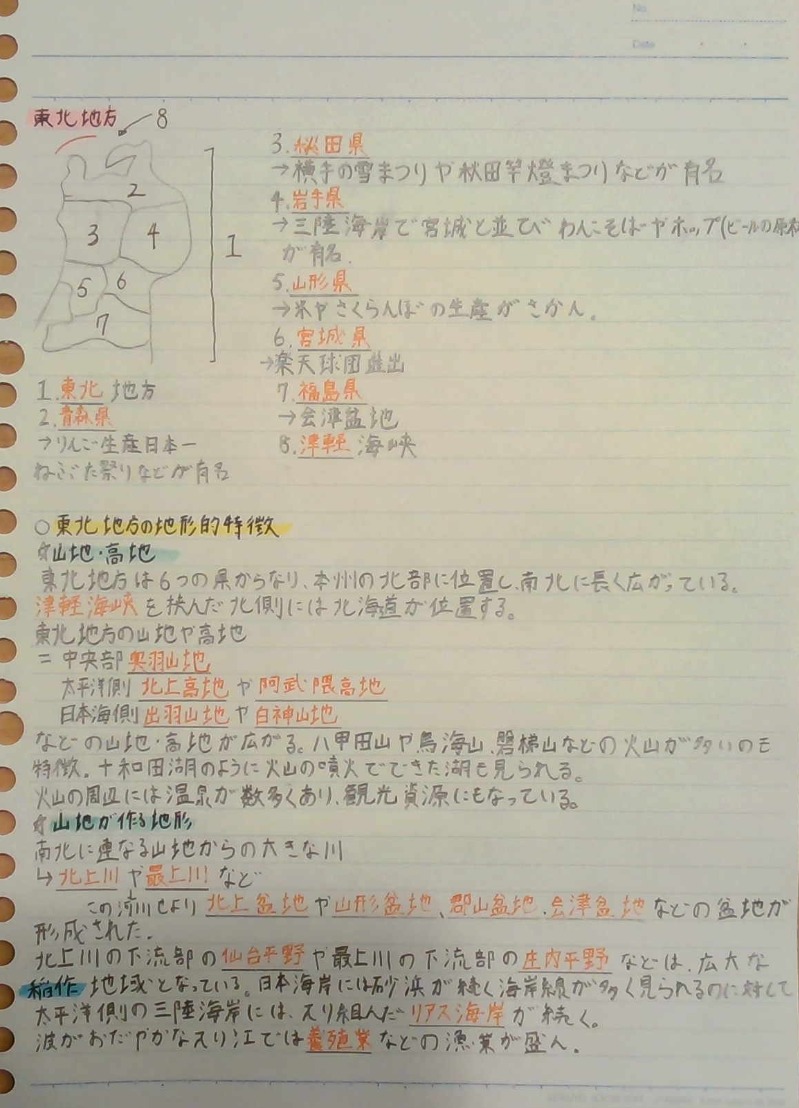 No.
Date
東北地方
8
2
3
4
5
6
7
1
1.東北地方
2.青森県
→りんご生産日本一
ねぶた祭りなどが有名
3.秋田県
→横手の雪まつりや秋田竿燈まつりなどが有名
4.岩手県
→三陸海岸で宮城と並び わんこそばやホップ(ビールの原材
が有名.
5.山形県
→米やさくらんぼの生産がさかん。
6.宮城県
→楽天球団進出
7.福島県
→会津盆地
8.津軽海峡
○東北地方の地形的特徴
☆山地・高地
東北地方は6つの県からなり、本州の北部に位置し、南北に長く広がっている。
津軽海峡を挟んだ北側には北海道が位置する。
東北地方の山地や高地
=中央部 奥羽山地
太平洋側 北上高地や阿武隈高地
日本海側 出羽山地や白神山地
などの山地・高地が広がる。八甲田山や鳥海山、磐梯山などの火山が多いのも
特徴。十和田湖のように火山の噴火でできた湖も見られる。
火山の周辺には温泉が数多くあり、観光資源にもなっている。
☆山地が作る地形
南北に連なる山地からの大きな川
↳北上川や最上川など
この河川により北上盆地や山形盆地、郡山盆地、会津盆地などの盆地が
形成された.
北上川の下流部の仙台平野や最上川の下流部の庄内平野などは、広大な
稲作地域となっている。日本海岸には砂浜が続く海岸線が多く見られるのに対して
太平洋側の三陸海岸には、入り組んだリアス海岸が続く。
波がおだやかな入り江では養殖業などの漁業が盛ん.